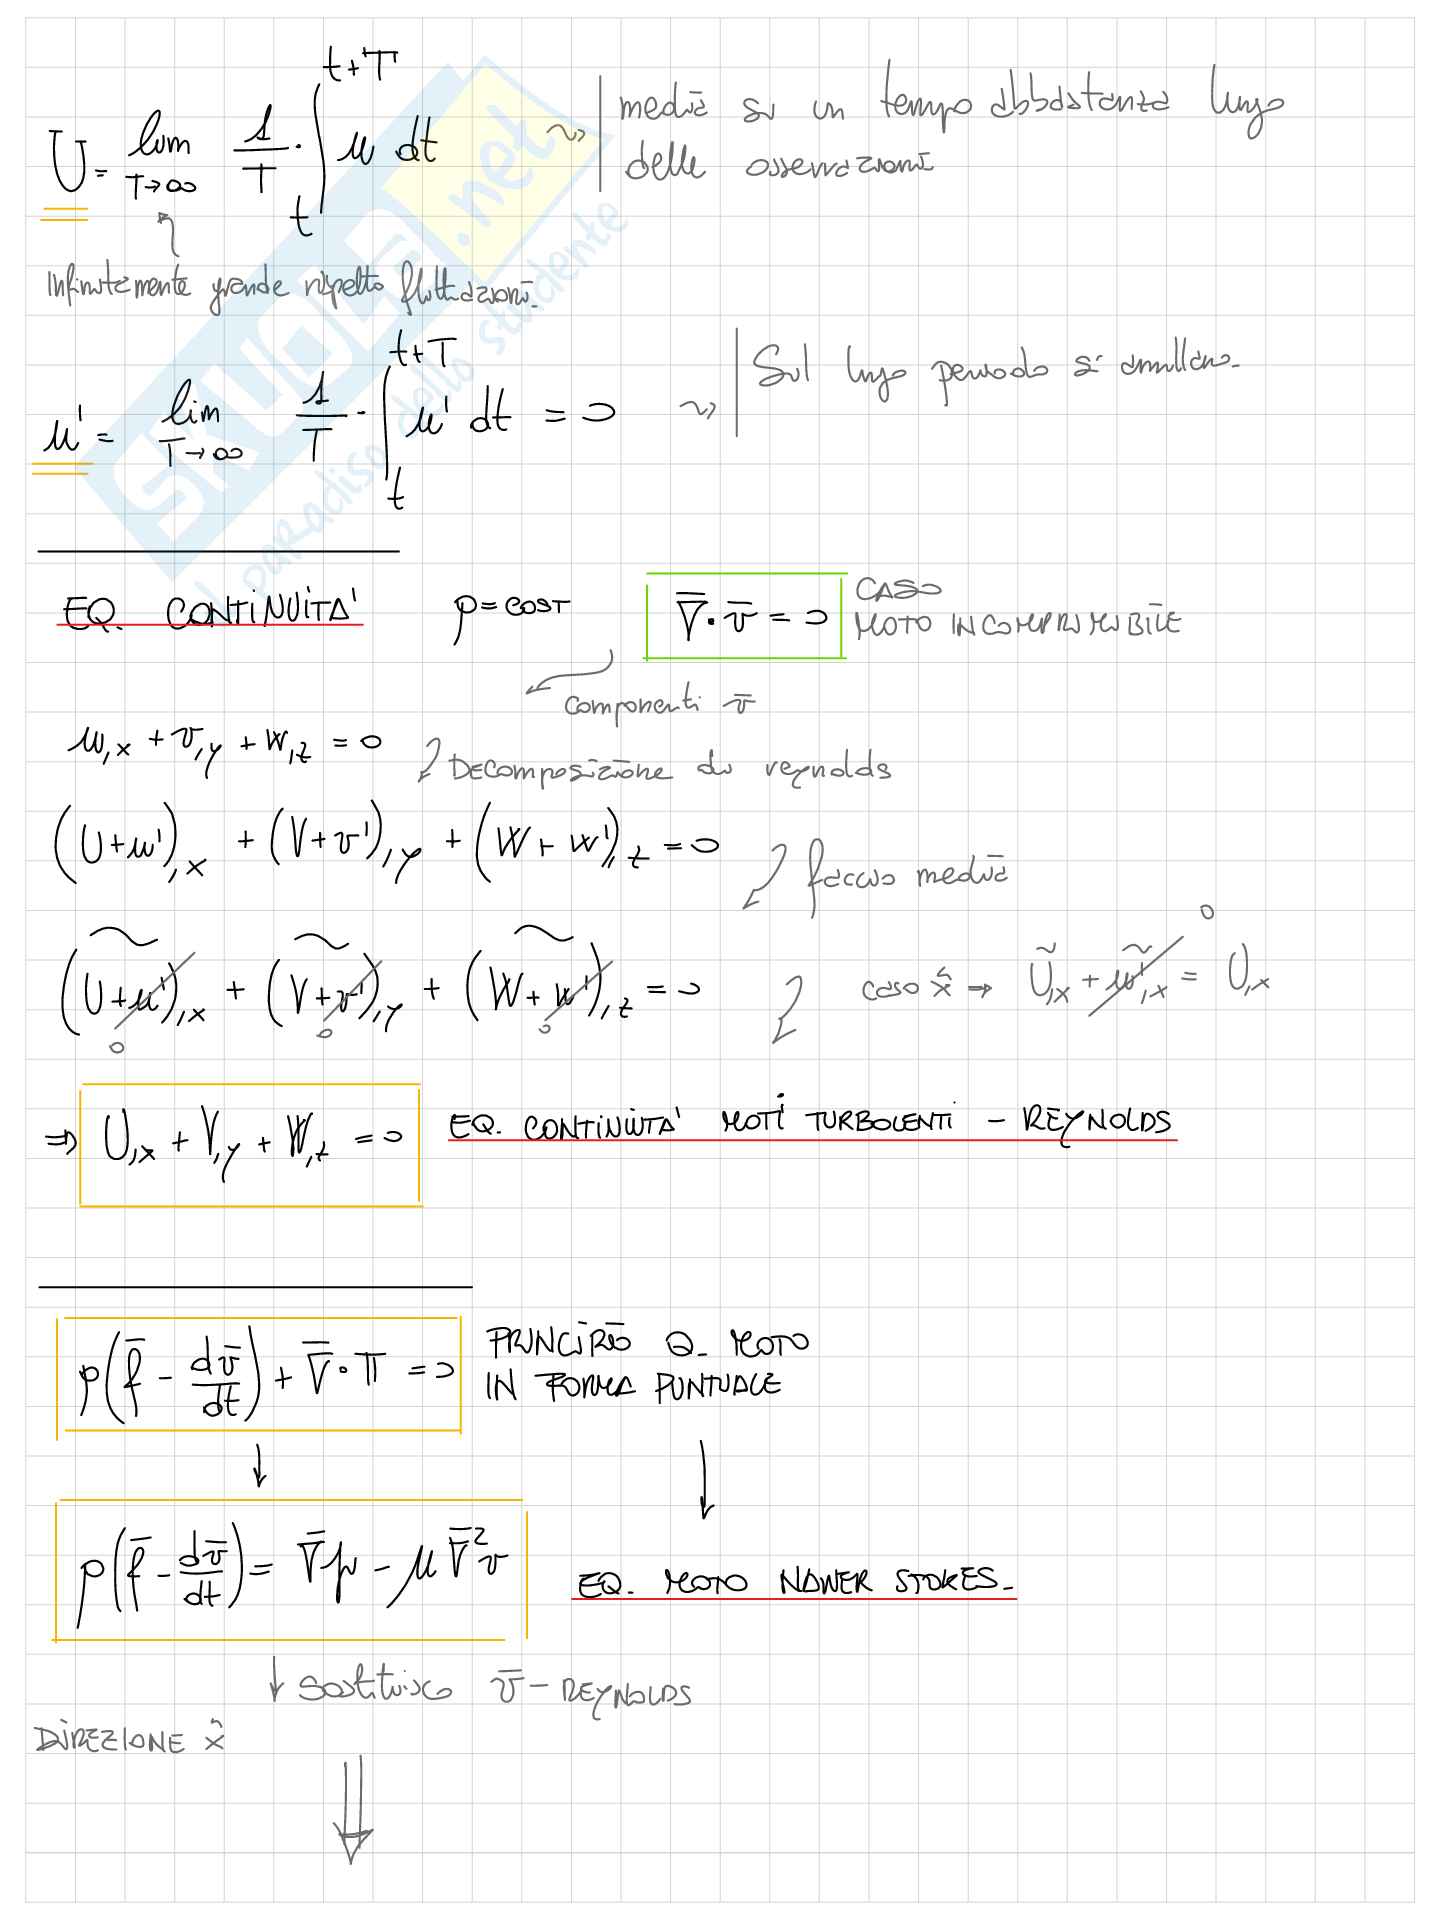 U = lim T→∞ 1/T · ∫ t t+T u dt ~> media su un tempo abbastanza lungo
delle osservazioni
Infinitamente grande rispetto fluttuazioni.
u' = lim T→∞ 1/T · ∫ t t+T u' dt = 0 ~> Sul lungo periodo si annullano.
EQ. CONTINUITA' ρ = COST ∇̅ · v̅ = 0 CASO
MOTO INCOMPRIMIBILE
componenti v̅
u,x + v,y + w,z = 0
Decomposizione di reynolds
(U+u'),x + (V+v'),y + (W+w'),z = 0
faccio media
(U+u'),x + (V+v'),y + (W+w'),z = 0 caso x̂ → Ũ,x + ũ',x = U,x
0 0 0 0
⇒ U,x + V,y + W,z = 0 EQ. CONTINUITA' MOTI TURBOLENTI – REYNOLDS
ρ(f̅ - dv̅/dt) + ∇̅ · π = 0 PRINCIPIO Q. MOTO
IN FORMA PUNTUALE
ρ(f̅ - dv̅/dt) = ∇̅p - μ ∇̅²v EQ. MOTO NAVIER STOKES.
↓ Sostituisco v̅ – REYNOLDS
DIREZIONE x̂
SKUOLA.net
il paradiso dello studente